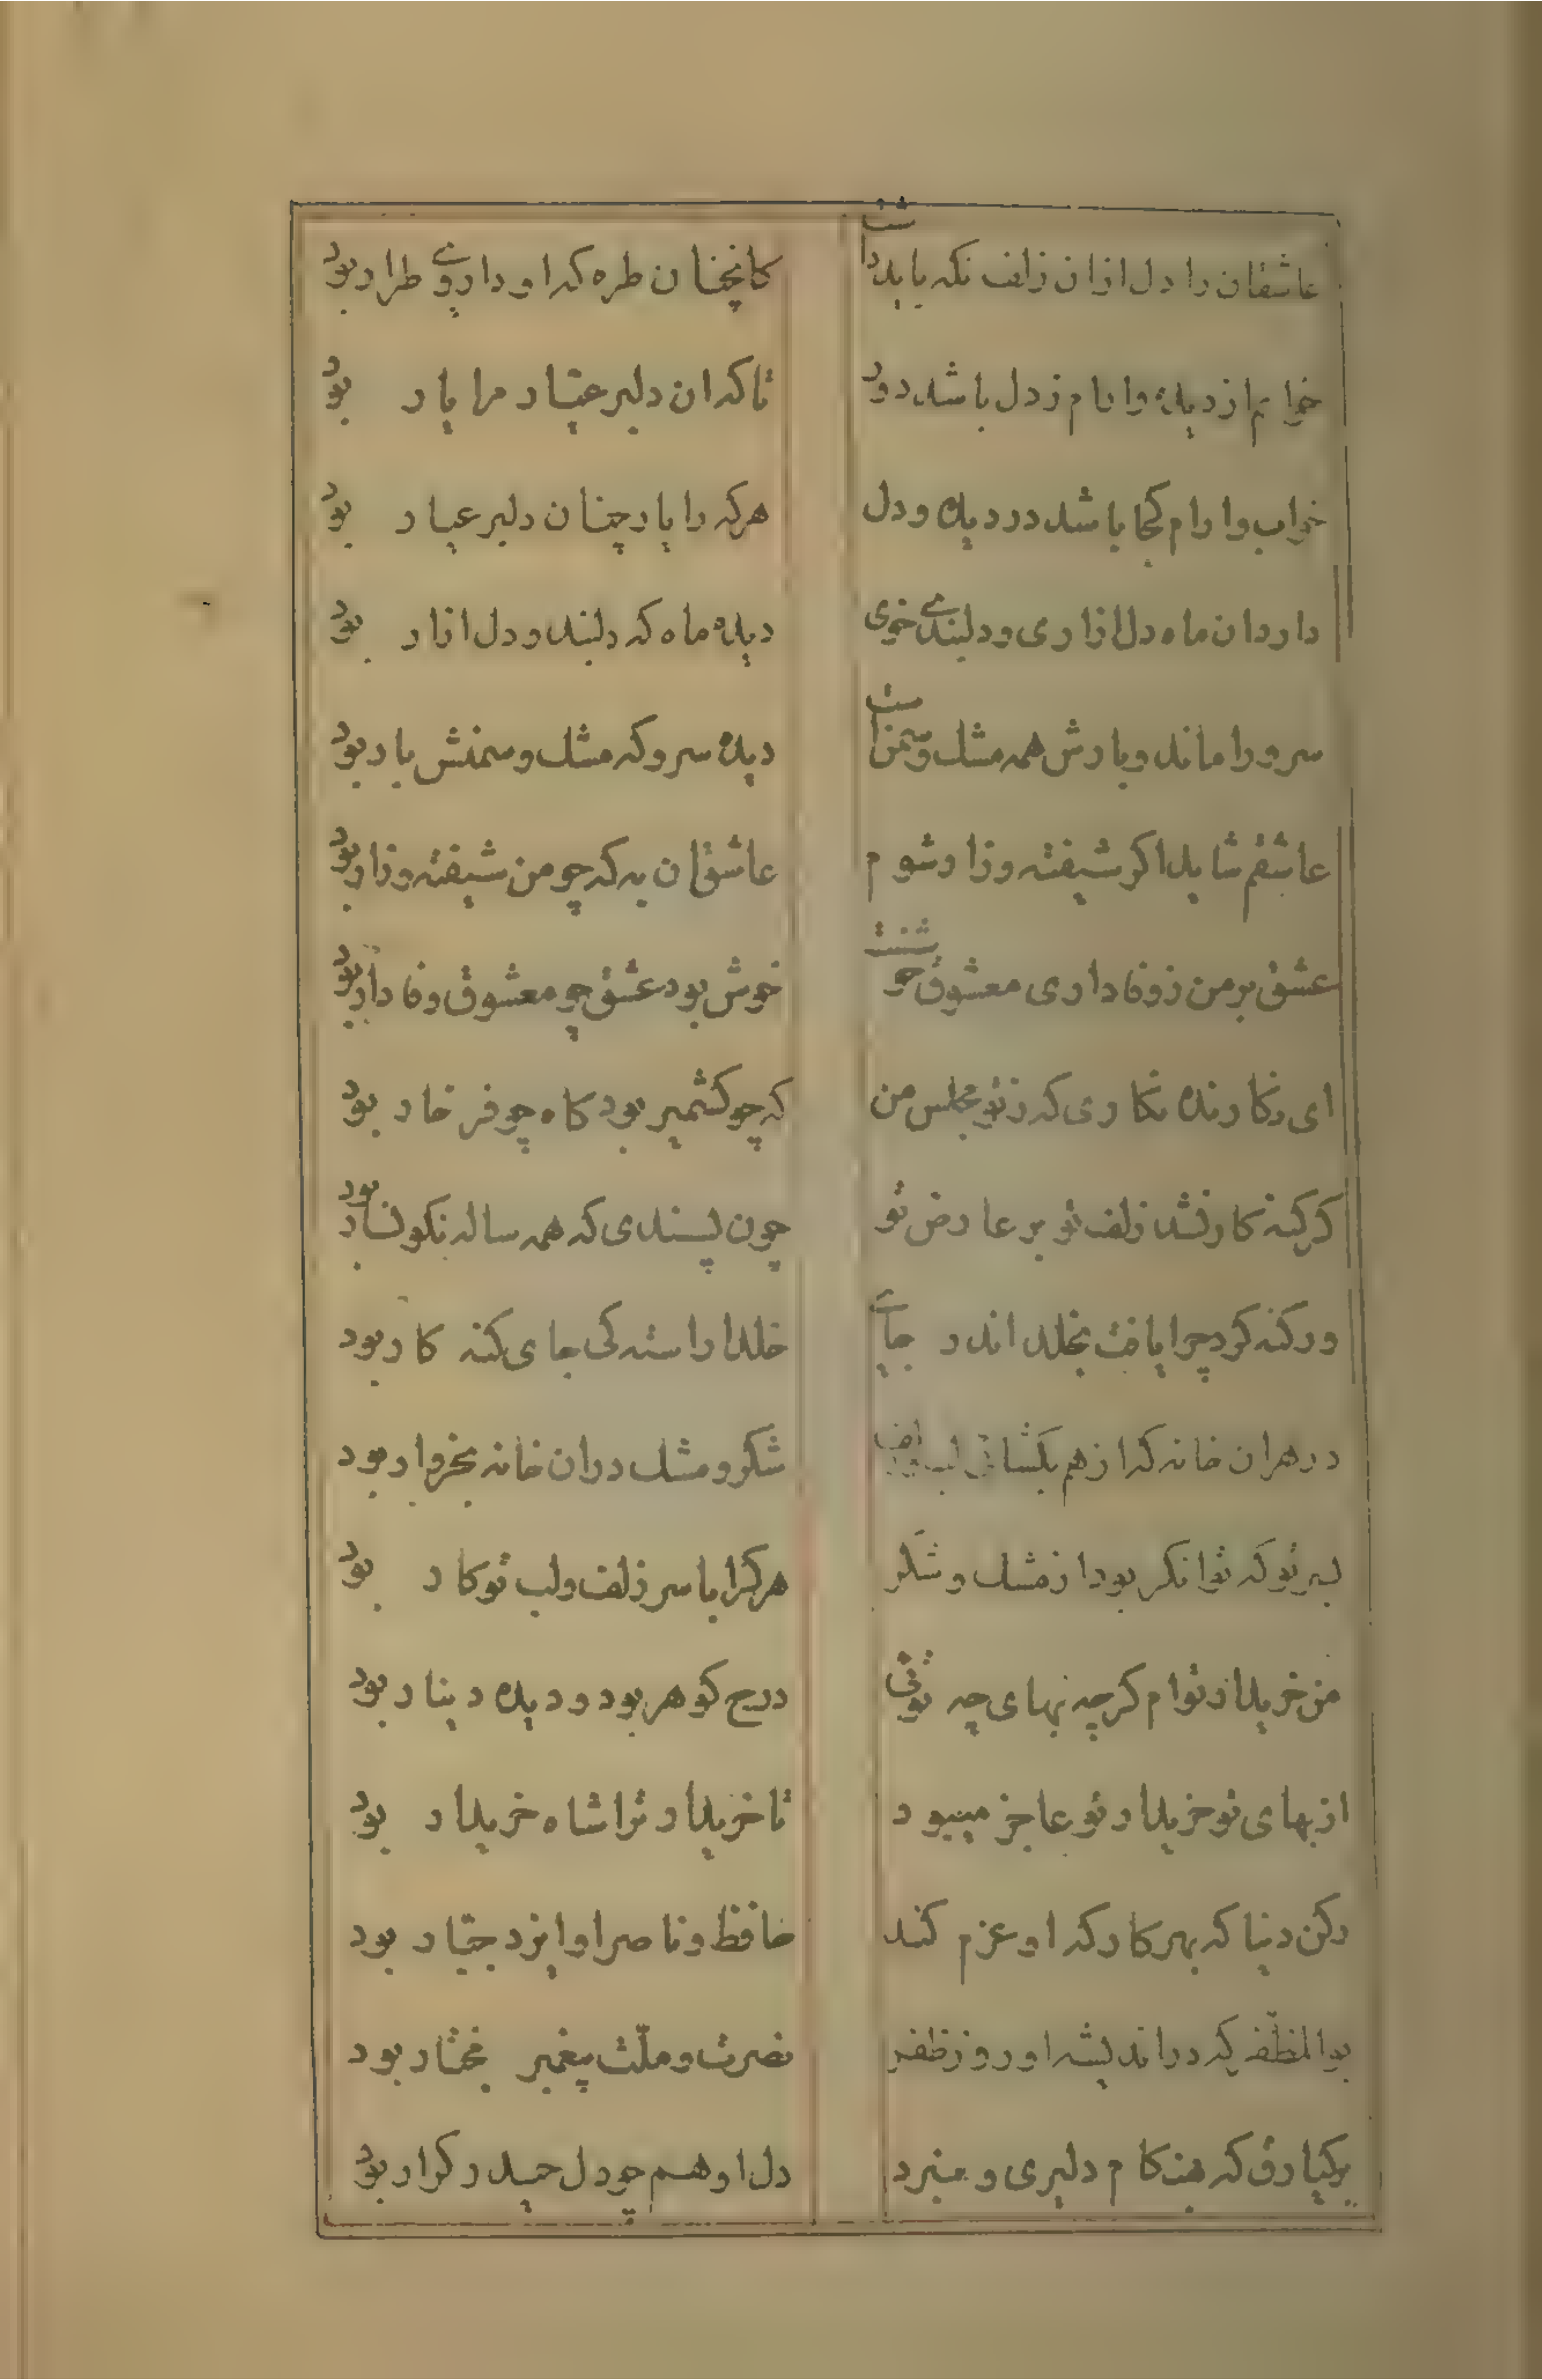 عاشقان را دل ازان زلف نکه باید داشت کانچنان طره که او دارد وی طرار بود
خوابم از دیده وارام ز دل باشد دور تا که ان دلبر عیّار مرا یار بود
خواب وارام کجا باشد در دیده و دل هرکه را یار چنان دلبر عیار بود
دارد ان ماه دل ازاری و دلبندی خوی دیده ماه که دلبند و دل ازار بود
سرو را ماند و بارش همه مشک و سمنست دیده سرو که مشک و سمنش بار بود
عاشقم شاید اکر شیفته و زار شوم عاشق ان به که چو من شیفته و زار بود
عشق بر من ز وفاداری معشوق خوشست خوش بود عشق چو معشوق وفادار بود
ای نکارنده نکاری که ز تو مجلس من که چو کشمیر بود کاه چو فرخار بود
کر کنه کار نشد زلف تو بر عارض تو چون پسندی که همه ساله نکونسار بود
ور کنه کرد چرا یافت بخلد اندر جای خلد اراسته کی جای کنه کار بود
در هران خانه که از هم بکشائی لب شکر و مشک دران خانه بخروار بود
بس تو که توانکر بود از مشک و شکر هرکرا با سر زلف و لب تو کار بود
من خریدار توام کرچه بهای چه توئی درج کوهر بود و دیده دینار بود
از بهای تو خریدار تو عاجز میبود تا خریدار ترا شاه خریدار بود
رکن دنیا که بهر کار که او عزم کند حافظ و ناصر او ایزد جبّار بود
بوالمظفّر که در اندیشه او روز ظفر نصرت و ملّت پیغمبر مختار بود
برکیارق که بهنکام دلیری و نبرد دل او هم چو دل حیدر کرار بود